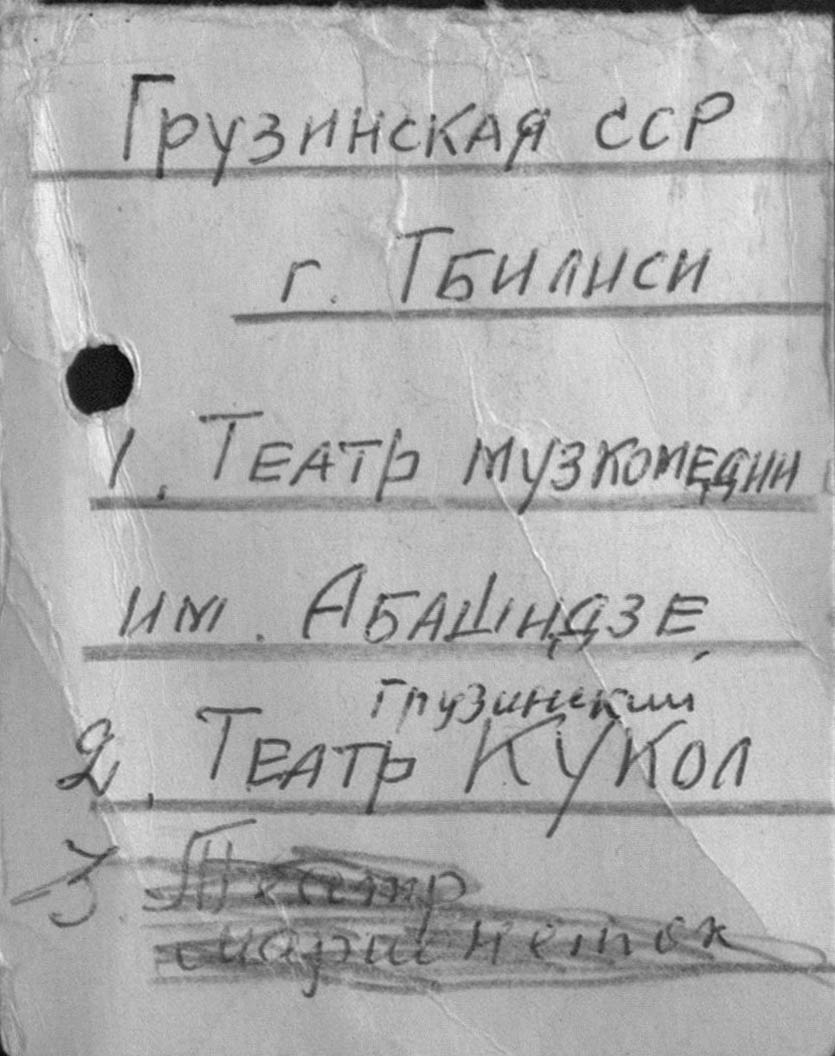 Грузинская ССР
г. Тбилиси
1. Театр музкомедии
им. Абашидзе
грузинский
2. Театр кукол
3 Театр
марионеток